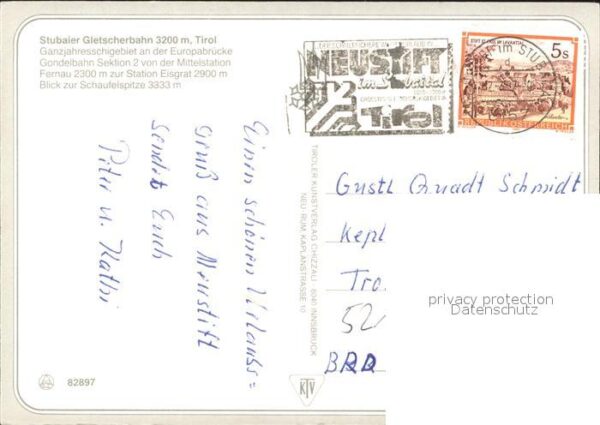 Stubaier Gletscherbahn 3200 m, Tirol
Ganzjahresschigebiet an der Europabrücke
Gondelbahn Sektion 2 von der Mittelstation
Fernau 2300 m zur Station Eisgrat 2900 m
Blick zur Schaufelspitze 3333 m
NEUSTIFT
im Stubaital
Tirol
5s
REPUBLIK ÖSTERREICH
Einen schönen Urlaubs=
gruß aus Neustift
sendet Euch
Peter u. Kathi
TIROLER KUNSTVERLAG CHIZZALI · 6040 INNSBRUCK
NEU-RUM, KAPLANSTRASSE 10
KTV
Gustl Quadt Schmidt
Kepl
Tro
52
BRD
privacy protection
Datenschutz
82897